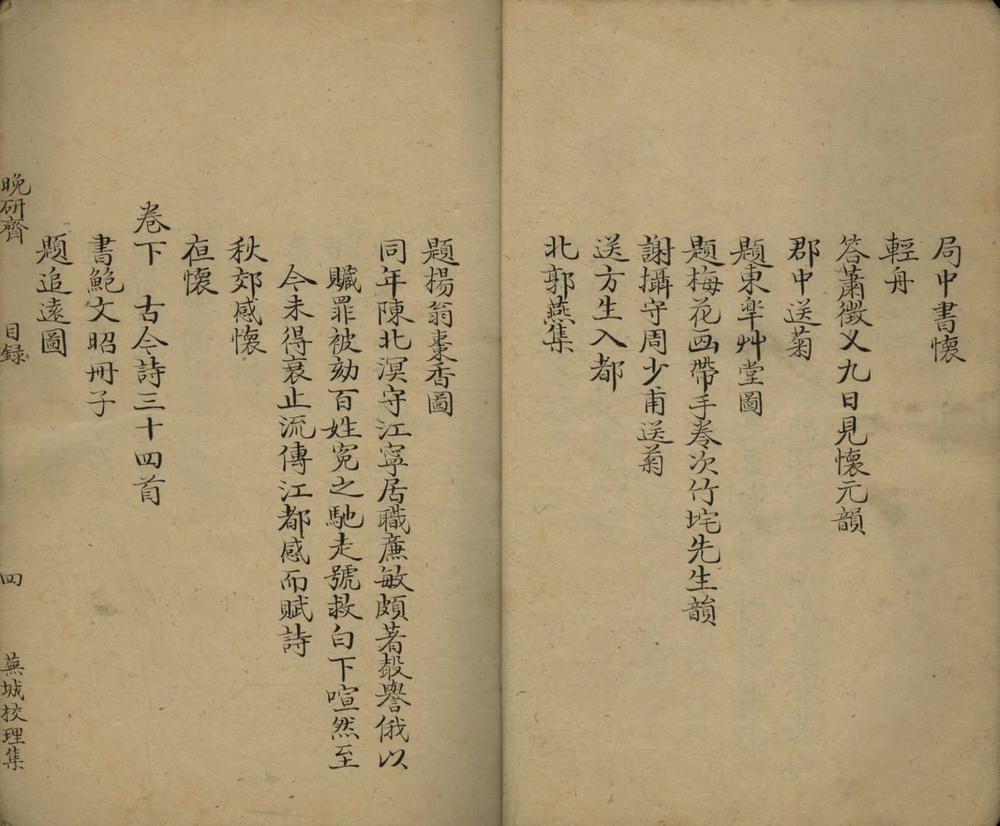 局中書懷
輕舟
答蕭徵乂九日見懷元韻
郡中送菊
題東臯艸堂圖
題梅花画帶手卷次竹垞先生韻
謝攝守周少甫送菊
送方生入都
北郭燕集
題揚翁棗香圖
同年陳北溟守江寧居職亷敏頗著聲譽俄以
贓罪被劾百姓寃之馳走號救白下喧然至
今未得衰止流傳江都感而賦詩
秋郊感懷
夜懷
卷下 古今詩三十四首
書鮑文昭冊子
題追遠圖
晚研齋 目録 四 蕪城校理集